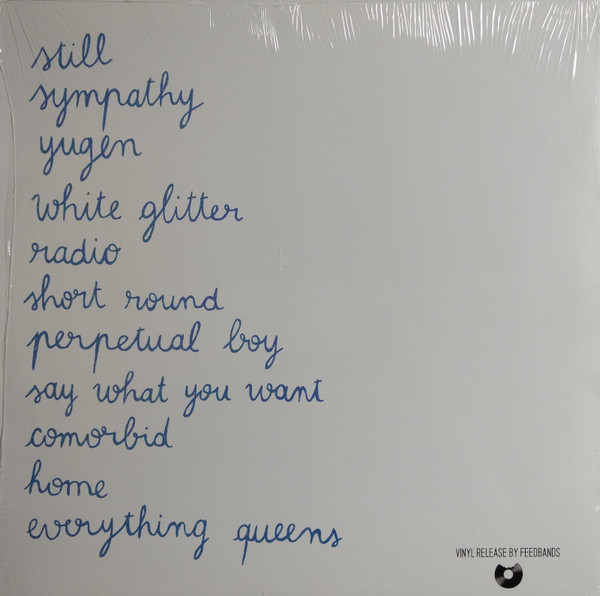 still
sympathy
yugen
white glitter
radio
short round
perpetual boy
say what you want
comorbid
home
everything queens
VINYL RELEASE BY FEEDBANDS